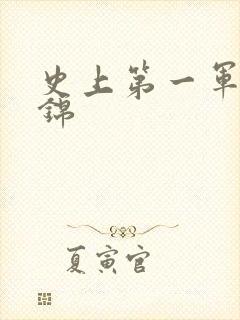 史上第一軍
錦
夏寅官